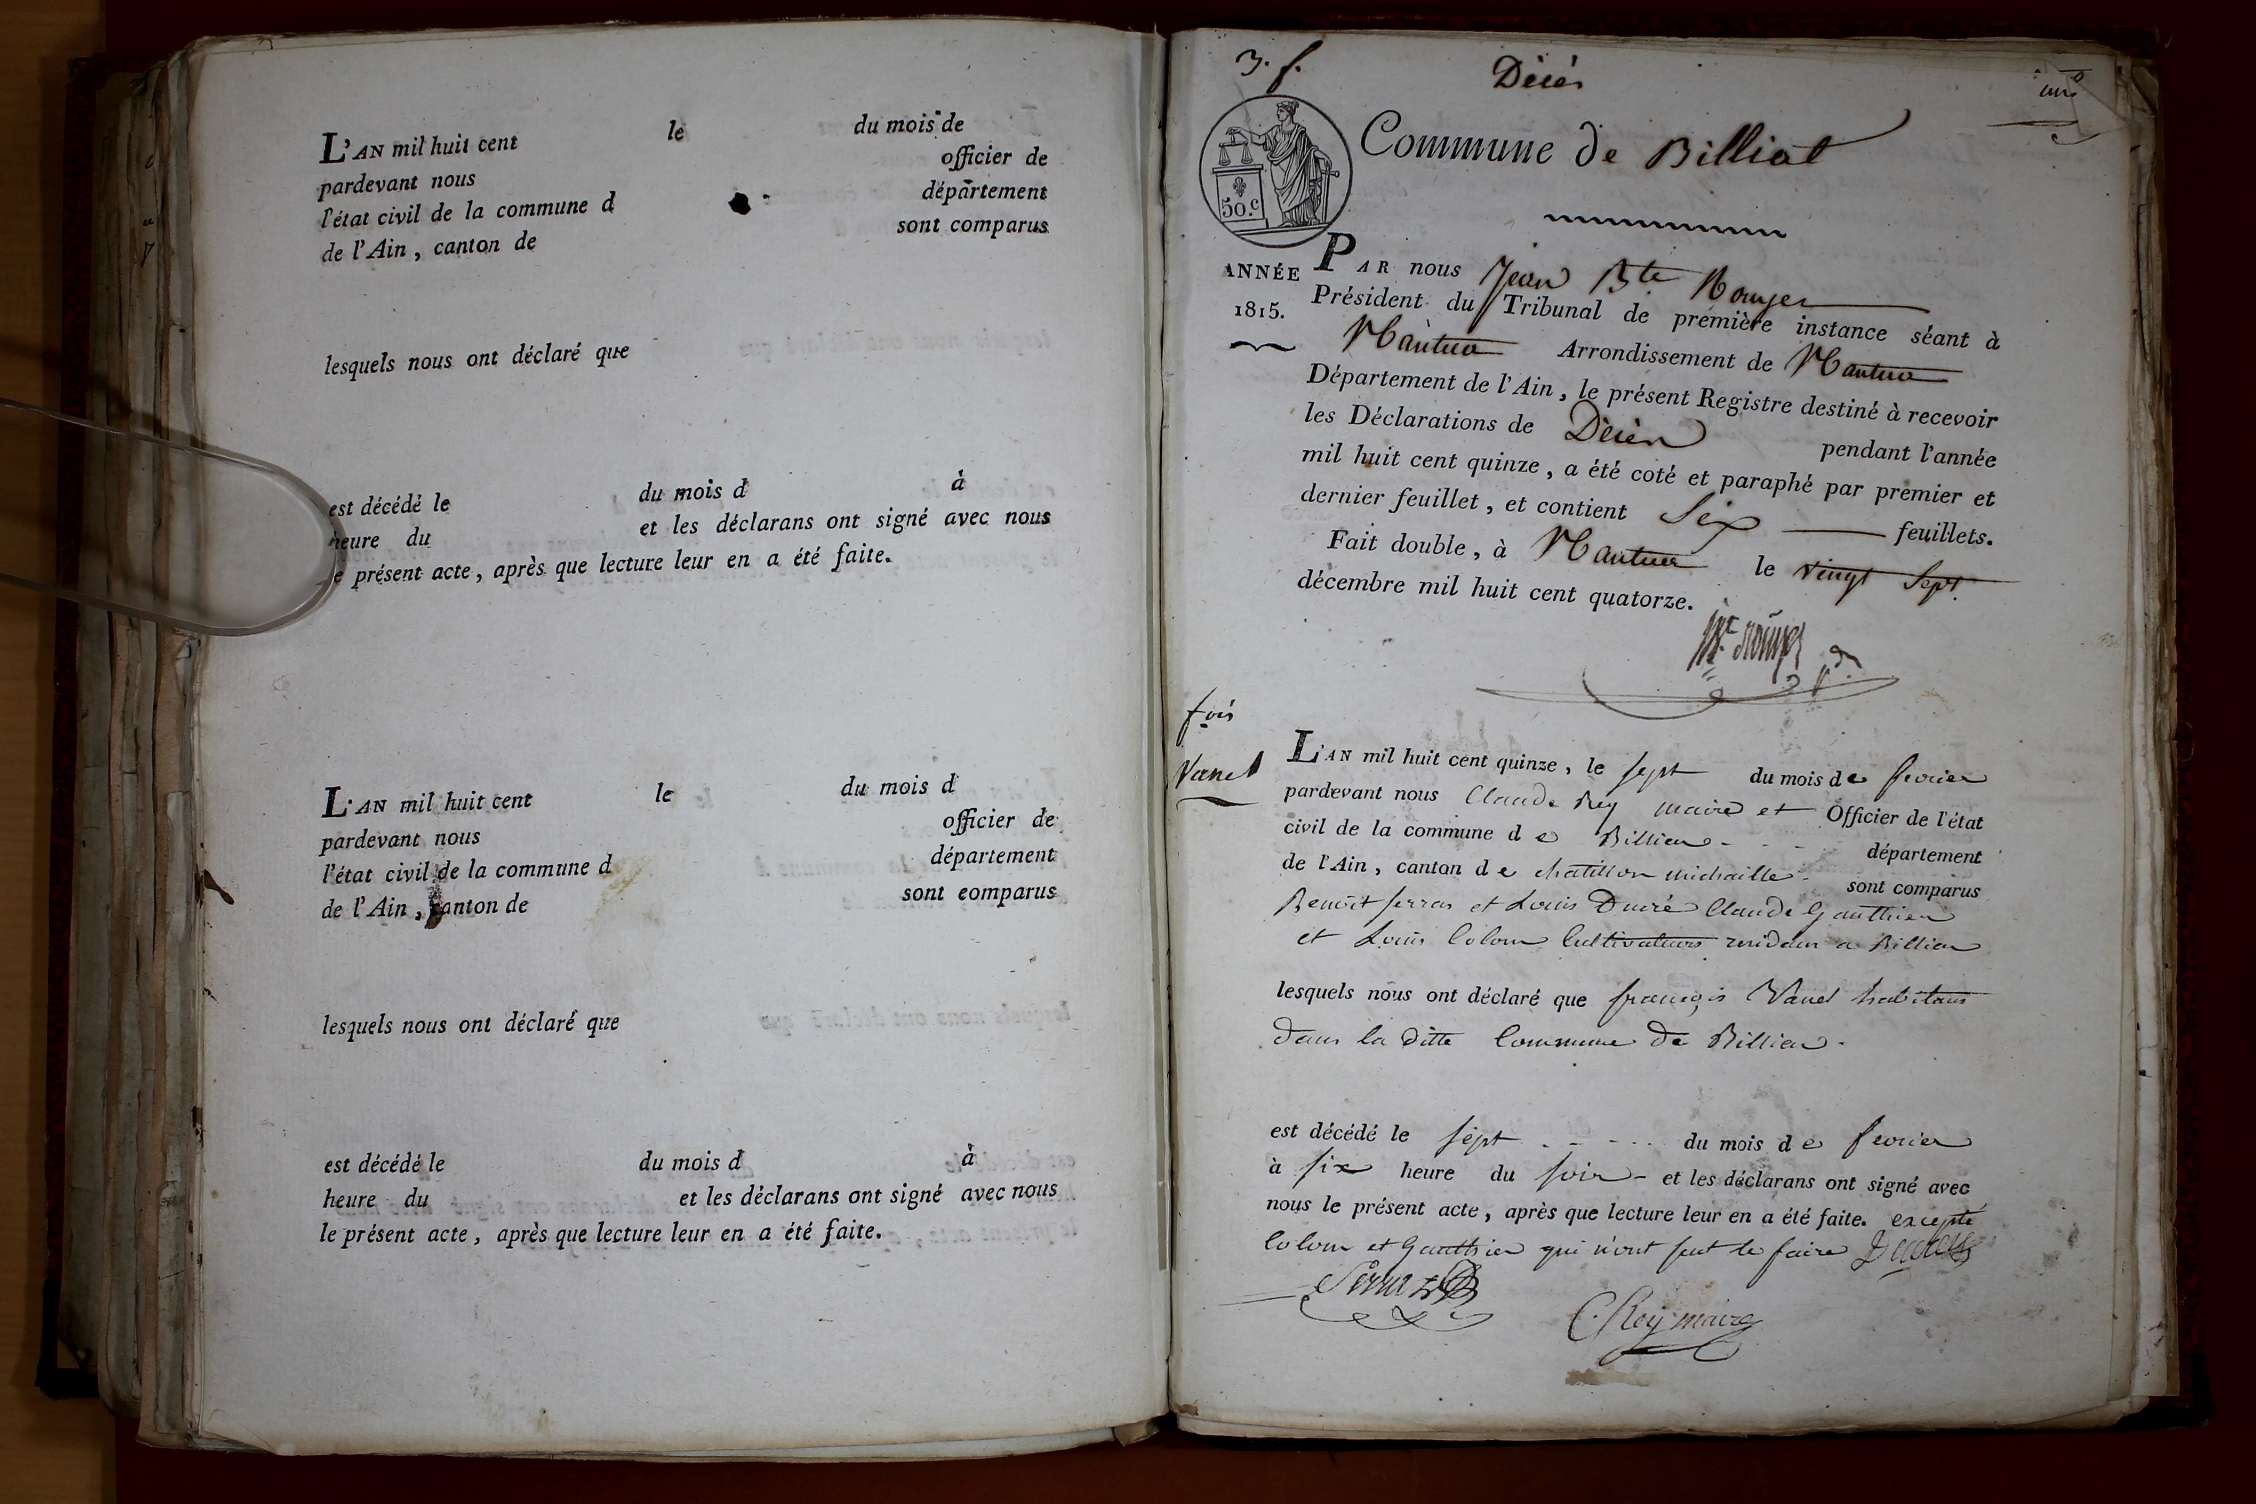 L'AN mil huit cent le du mois de
pardevant nous officier de
l'état civil de la commune d département
de l'Ain, canton de sont comparus
lesquels nous ont déclaré que
est décédé le du mois d à
heure du et les déclarans ont signé avec nous
le présent acte, après que lecture leur en a été faite.
L'AN mil huit cent le du mois d
pardevant nous officier de
l'état civil de la commune d département
de l'Ain, canton de sont comparus
lesquels nous ont déclaré que
est décédé le du mois d à
heure du et les déclarans ont signé avec nous
le présent acte, après que lecture leur en a été faite.
3. f.
Décès
Commune de Billiat
50.c
ANNÉE
1815.
PAR nous Jean Bte
Président du Tribunal de première instance séant à
Nantua Arrondissement de Nantua
Département de l'Ain, le présent Registre destiné à recevoir
les Déclarations de Décès pendant l'année
mil huit cent quinze, a été coté et paraphé par premier et
dernier feuillet, et contient Six feuillets.
Fait double, à Nantua le vingt Sept
décembre mil huit cent quatorze.
fois
Vanel
L'AN mil huit cent quinze, le sept du mois de fevrier
pardevant nous Claude Rey maire et Officier de l'état
civil de la commune de Billien département
de l'Ain, canton de chatillon michaille sont comparus
Benoit serras et Louis Ducré Claude Gauthier
et Louis Colom Cultivateurs residans a Billien
lesquels nous ont déclaré que françois Vanel habitans
dans la ditte Commune de Billien
est décédé le sept du mois de fevrier
à six heure du soir et les déclarans ont signé avec
nous le présent acte, après que lecture leur en a été faite. excepté
Colom et Gauthier qui n'ont seut le faire
C. Rey maire